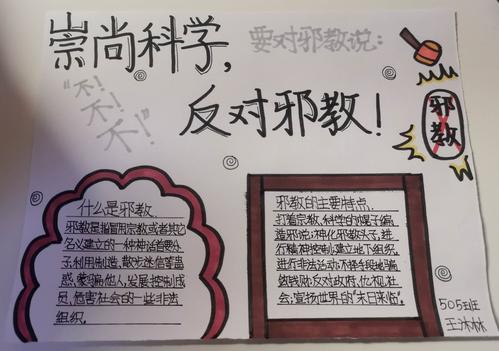 崇尚科学，
要对邪教说：
“不！
不！
不！”
反对邪教！
邪教
什么是邪教
邪教是指冒用宗教或者其它
名义建立的一种神话首要分
子，利用制造、散布迷信等蛊
惑、蒙骗他人，发展、控制成
员，危害社会的一些非法
组织。
邪教的主要特点
打着宗教、科学的幌子编
造邪说；神化邪教头子，进
行精神控制；建立地下组织，
进行非法活动；不择手段地骗
钱敛财；反对政府，仇视社
会；宣扬世界的“末日来临”。
505班
王沐林